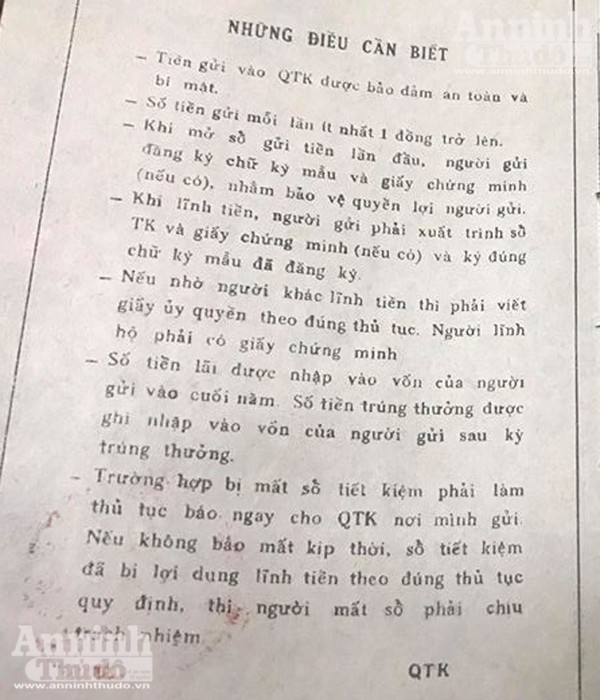 Anninh
Thudo
www.anninhthudo.vn
NHỮNG ĐIỀU CẦN BIẾT
– Tiền gửi vào QTK được bảo đảm an toàn và
bí mật.
– Số tiền gửi mỗi lần ít nhất 1 đồng trở lên.
– Khi mở sổ gửi tiền lần đầu, người gửi
đăng ký chữ ký mẫu và giấy chứng minh
(nếu có), nhằm bảo vệ quyền lợi người gửi.
– Khi lĩnh tiền, người gửi phải xuất trình sổ
TK và giấy chứng minh (nếu có) và ký đúng
chữ ký mẫu đã đăng ký.
– Nếu nhờ người khác lĩnh tiền thì phải viết
giấy ủy quyền theo đúng thủ tục. Người lĩnh
hộ phải có giấy chứng minh
– Số tiền lãi được nhập vào vốn của người
gửi vào cuối năm. Số tiền trúng thưởng được
ghi nhập vào vốn của người gửi sau kỳ
trúng thưởng.
– Trường hợp bị mất sổ tiết kiệm phải làm
thủ tục báo ngay cho QTK nơi mình gửi.
Nếu không báo mất kịp thời, sổ tiết kiệm
đã bị lợi dụng lĩnh tiền theo đúng thủ tục
quy định, thì người mất sổ phải chịu
trách nhiệm.
QTK
Anninh
Thudo
www.anninhthudo.vn